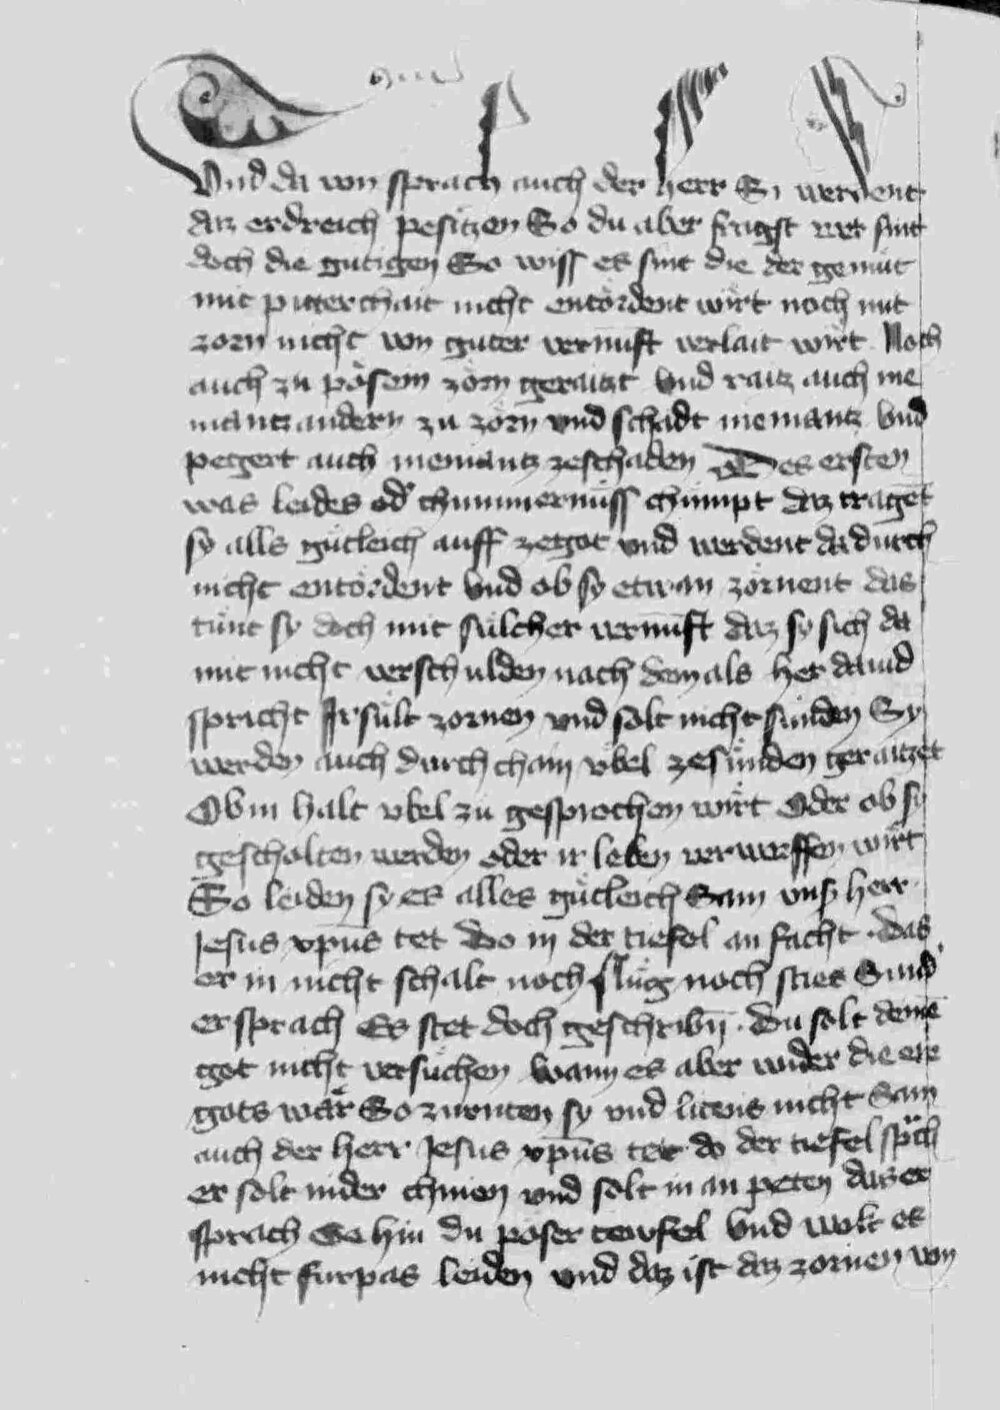 Vnd da von sprach auch der herr Si werdent
daz erdreich pesitzen So du aber fragst wer sint
doch die gutigen So wiss es sint die der gemut
mit pitterchait nicht entördent wirt noch mit
zorn nicht von guter vernuft verlait wirt Noch
auch zu pösem zorn geraitzt Vnd raitz auch nie
mantz andern zu zorn vnd schadt niemantz Vnd
pegert auch niemantz zeschaden Des ersten
was leides od' chummernüss chumpt daz tragēt
sy alls gütleich auff zegot vnd werdent da durch
nicht entördent Vnd ob sy etwan zörnent das
tünt sy doch mit sülcher vernuft daz sy sich da
mit nicht verschulden nach dem als her dauid
spricht Ir sült zornen vnd solt nicht sünden Sy
werden auch durch chain vbel ze sünden geraitzet
Ob in halt vbel zu gesprochen wirt Oder ob sy
gescholten werden oder ir leben verworffen wirt
So leiden sy es alles gütleich Sam vnsz herr
Jesus xp̄us tet Do in der tiefel an facht das
er in nicht schalt noch slüg noch sties Sund'
er sprach Es stet doch geschribn̄ Du solt deinē
got nicht versuchen Wann es aber wider die ere
gots wär So zurnten sy vnd litens nicht Sam
auch der herr Jesus xp̄us tet do der tiefel sprch
er solt nider chnien vnd solt in an peten daz er
sprach Ge hin du poser teufel Vnd wolt es
nicht furpas leiden vnd daz ist daz zornen von